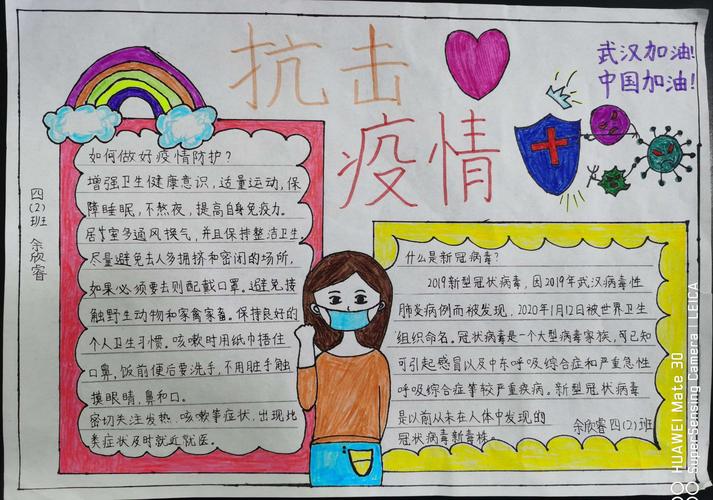 抗击
疫情
武汉加油!
中国加油!
四(2)班 余欣睿
如何做好疫情防护?
增强卫生健康意识,适量运动,保
障睡眠,不熬夜,提高自身免疫力。
居室多通风换气,并且保持整洁卫生
尽量避免去人多拥挤和密闭的场所,
如果必须要去则配戴口罩。避免接
触野生动物和家禽家畜。保持良好的
个人卫生习惯。咳嗽时用纸巾捂住
口鼻,饭前便后要洗手,不用脏手触
摸眼睛,鼻和口。
密切关注发热、咳嗽等症状,出现此
类症状及时就近就医。
什么是新冠病毒?
2019新型冠状病毒,因2019年武汉病毒性
肺炎病例而被发现,2020年1月12日被世界卫生
组织命名。冠状病毒是一个大型病毒家族,可已知
可引起感冒以及中东呼吸综合症和严重急性
呼吸综合症等较严重疾病。新型冠状病毒
是以前从未在人体中发现的
冠状病毒新毒株。
余欣睿四(2)班
HUAWEI Mate 30
SuperSensing Camera | LEICA